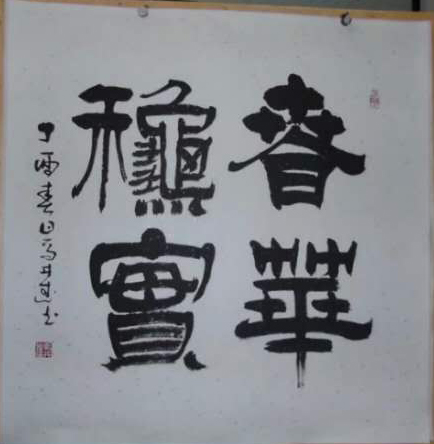 春華
龝實
丁酉春日